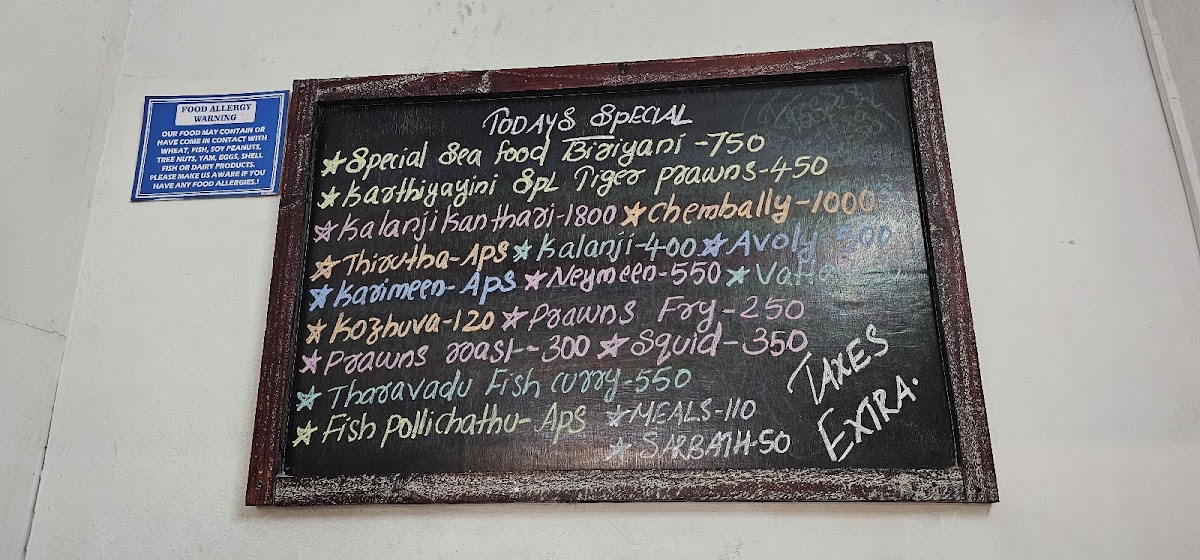 FOOD ALLERGY
WARNING
OUR FOOD MAY CONTAIN OR
HAVE COME IN CONTACT WITH
WHEAT, FISH, SOY PEANUTS,
TREE NUTS, YAM, EGGS, SHELL
FISH OR DAIRY PRODUCTS.
PLEASE MAKE US AWARE IF YOU
HAVE ANY FOOD ALLERGIES.!
TODAYS SPECIAL
★Special Sea food Biriyani -750
★Karthiyayini Spl Tiger prawns-450
★Kalanji Kanthari-1800 ★Chembally-1000
★Thirutha-Aps ★Kalanji-400 ★Avoly-500
★Karimeen-Aps ★Neymeen-550 ★Vatta
★Kozhuva-120 ★Prawns Fry-250
★Prawns roast-300 ★Squid-350
★Tharavadu Fish curry-550
★Fish pollichathu-Aps ★MEALS-110
★SARBATH-50
TAXES
EXTRA.